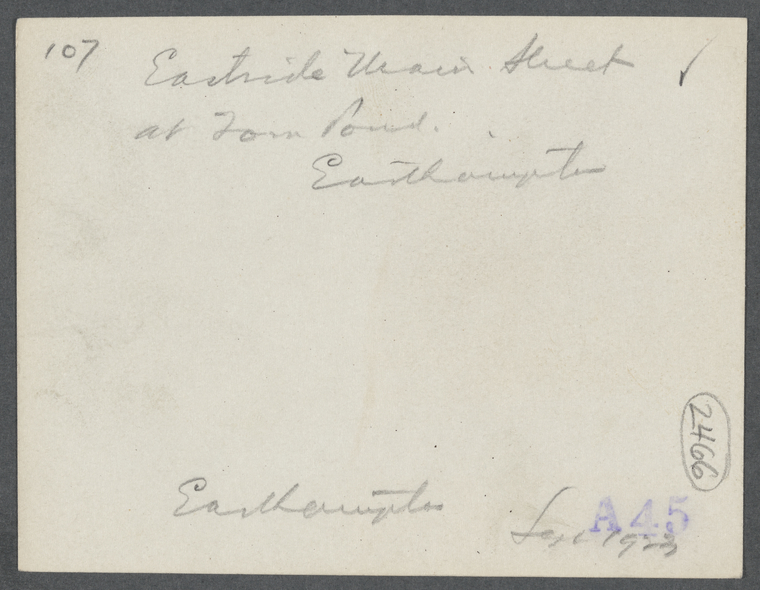 107
Eastside Main Street
at Town Pond.
Easthampton
2466
Easthampton
A45
Sept 1923